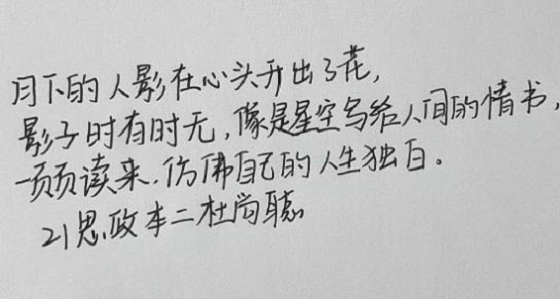 月下的人影在心头开出了花,
影子时有时无,像是星空写给人间的情书,
一页页读来.仿佛自己的人生独白.
21思政本二杜尚聪